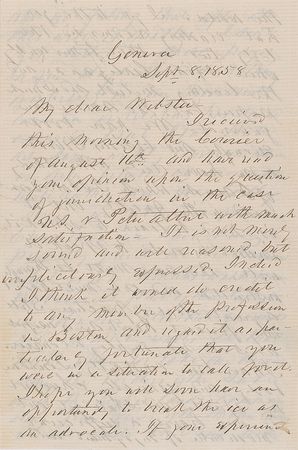 Geneva
Sept 8, 1858
My dear Webster
I received
this morning the Courier
of August 16th and have read
your opinion upon the question
of jurisdiction in the case
U.S. v Peter with much
satisfaction — It is not merely
sound and well reasoned but
expressed. Indeed
I think it would do credit
to any member of the profession
in Boston and regard it as par-
ticularly fortunate that you
were in a situation to
I hope you will soon have an
opportunity to break the ice as
an advocate. If your experience